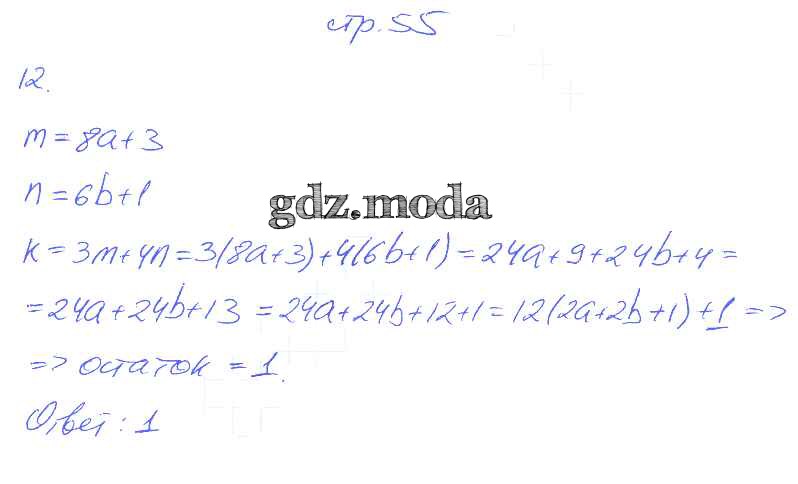 стр. 55
12.
m = 8a + 3
n = 6b + 1
gdz.moda
k = 3m + 4n = 3(8a + 3) + 4(6b + 1) = 24a + 9 + 24b + 4 =
= 24a + 24b + 13 = 24a + 24b + 12 + 1 = 12(2a + 2b + 1) + 1 =>
=> остаток = 1.
Ответ: 1